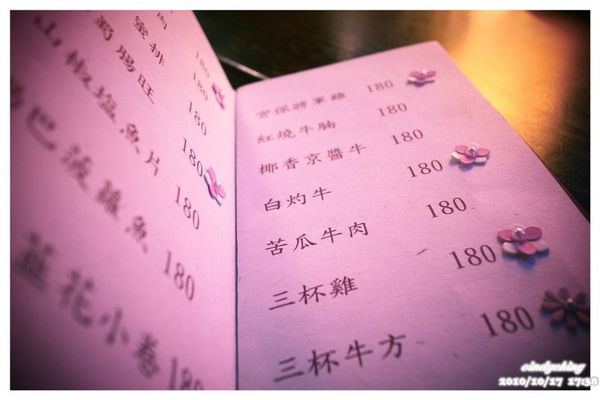 蜜排
蒟腸旺 180
山椒塩魚片 180
巴菠蘿魚 180
韮花小卷 180
宮保將軍雞 180
紅燒牛腩 180
椰香京醬牛 180
白灼牛 180
苦瓜牛肉 180
三杯雞 180
三杯牛方 180
cindyching
2010/10/17 17:38